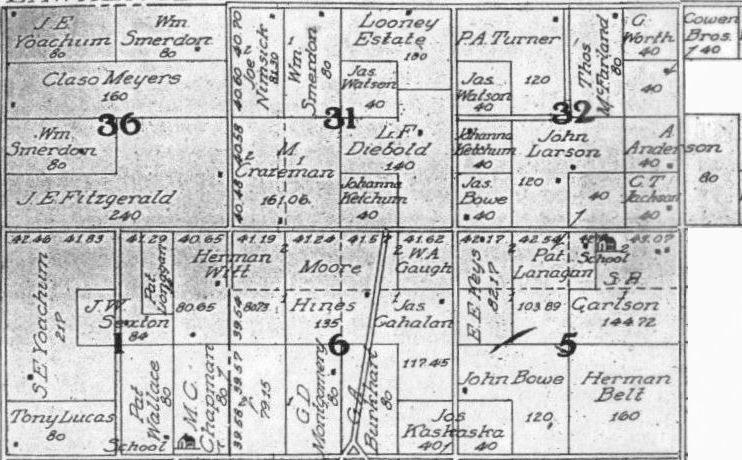 J.E.
Yoachum
80
Wm
Smerdon
80
Claso Meyers
160
36
Wm.
Smerdon
80
J.E. Fitzgerald
240
40.70
40.60
Joe
Nimsick
81.30
Wm.
Smerdon
80
Looney
Estate
Jas.
Watson
40
31
40.58
40.48
M.
Crateman
161.06
L.F.
Diebold
140
Johanna
Ketchum
40
P.A. Turner
120
Jas.
Watson
40
Thos
McFarland
80
G.
Worth
40
40
Cowen
Bros.
40
32
Johanna
Ketchum
40
John
Larson
120
A.
Anderson
40
80
Jas.
Bowe
40
40
C.T.
Jackson
40
42.46
41.83
41.29
40.65
41.19
41.24
41.62
42.17
42.54
43.07
S E Yoachum
217
J.W.
Sexton
84
Pat
Herman
Witt
80.65
1
Tony Lucas
80
Pat
Wallace
80
School
M.C.
Chapman
80.7
39.54
80.73
39.57
39.58
79.15
Moore
Hines
135
6
G D
Montgomery
80
G A
Burkhart
80
W.A
Gaugh
Jas
Gahalan
117.45
Jos
Kaskaska
40
40
E E Keys
82.17
Pat
Lanagan
103.89
School
S A
Carlson
144.72
5
John Bowe
120
Herman
Belt
160